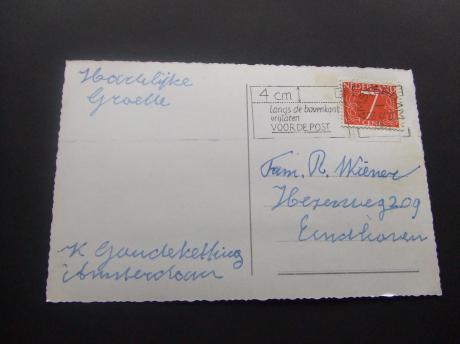 Hartelijke
Groette
K Goudeketting
Amsterdam
4 cm
langs de bovenkant
vrijlaten
VOOR DE POST
NEDERLAND
7
CENT
Fam. R. Wiener
Heezerweg 209
Eindhoven